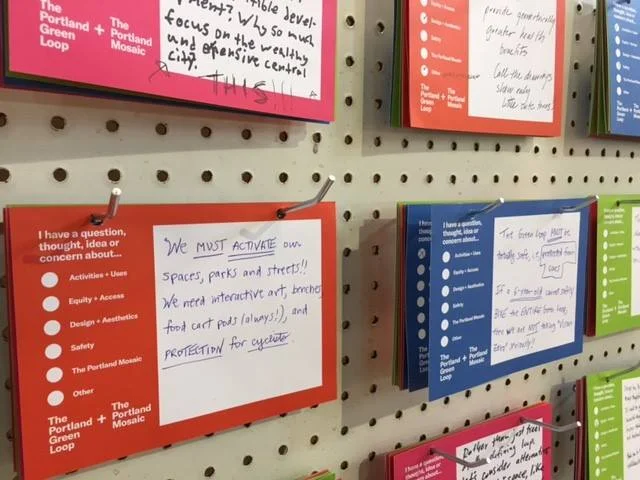 The
Portland
Green
Loop
+
The
Portland
Mosaic
ible devel-
pment? Why so much
focus on the wealthy
and expensive central
city.
THIS!!!
Design + Aesthetics
Safety
The Portland Mosaic
Other
The
Portland
Green
Loop
+
The
Portland
Mosaic
provide geometrically
greater health
benefits
Call the drawings
I have a question,
thought, idea or
concern about...
Activities + Uses
Equity + Access
Design + Aesthetics
Safety
The Portland Mosaic
Other
The
Portland
Green
Loop
+
The
Portland
Mosaic
We MUST ACTIVATE our
spaces, parks and streets!!
We need interactive art, benches,
food cart pods (always!), and
PROTECTION for cyclists.
I have a question,
thought, idea or
concern about...
Activities + Uses
Equity + Access
Design + Aesthetics
Safety
The Portland Mosaic
Other
The
Portland
Green
Loop
+
The
Portland
Mosaic
The Green Loop MUST be
totally safe, i.e. protected from
cars
If a 6-year-old cannot safely
BIKE the ENTIRE Green Loop,
then we are NOT taking "Vision
Zero" seriously!!
I have a question,
thought, idea or
Rather than just trees
defining loop
consider alternative